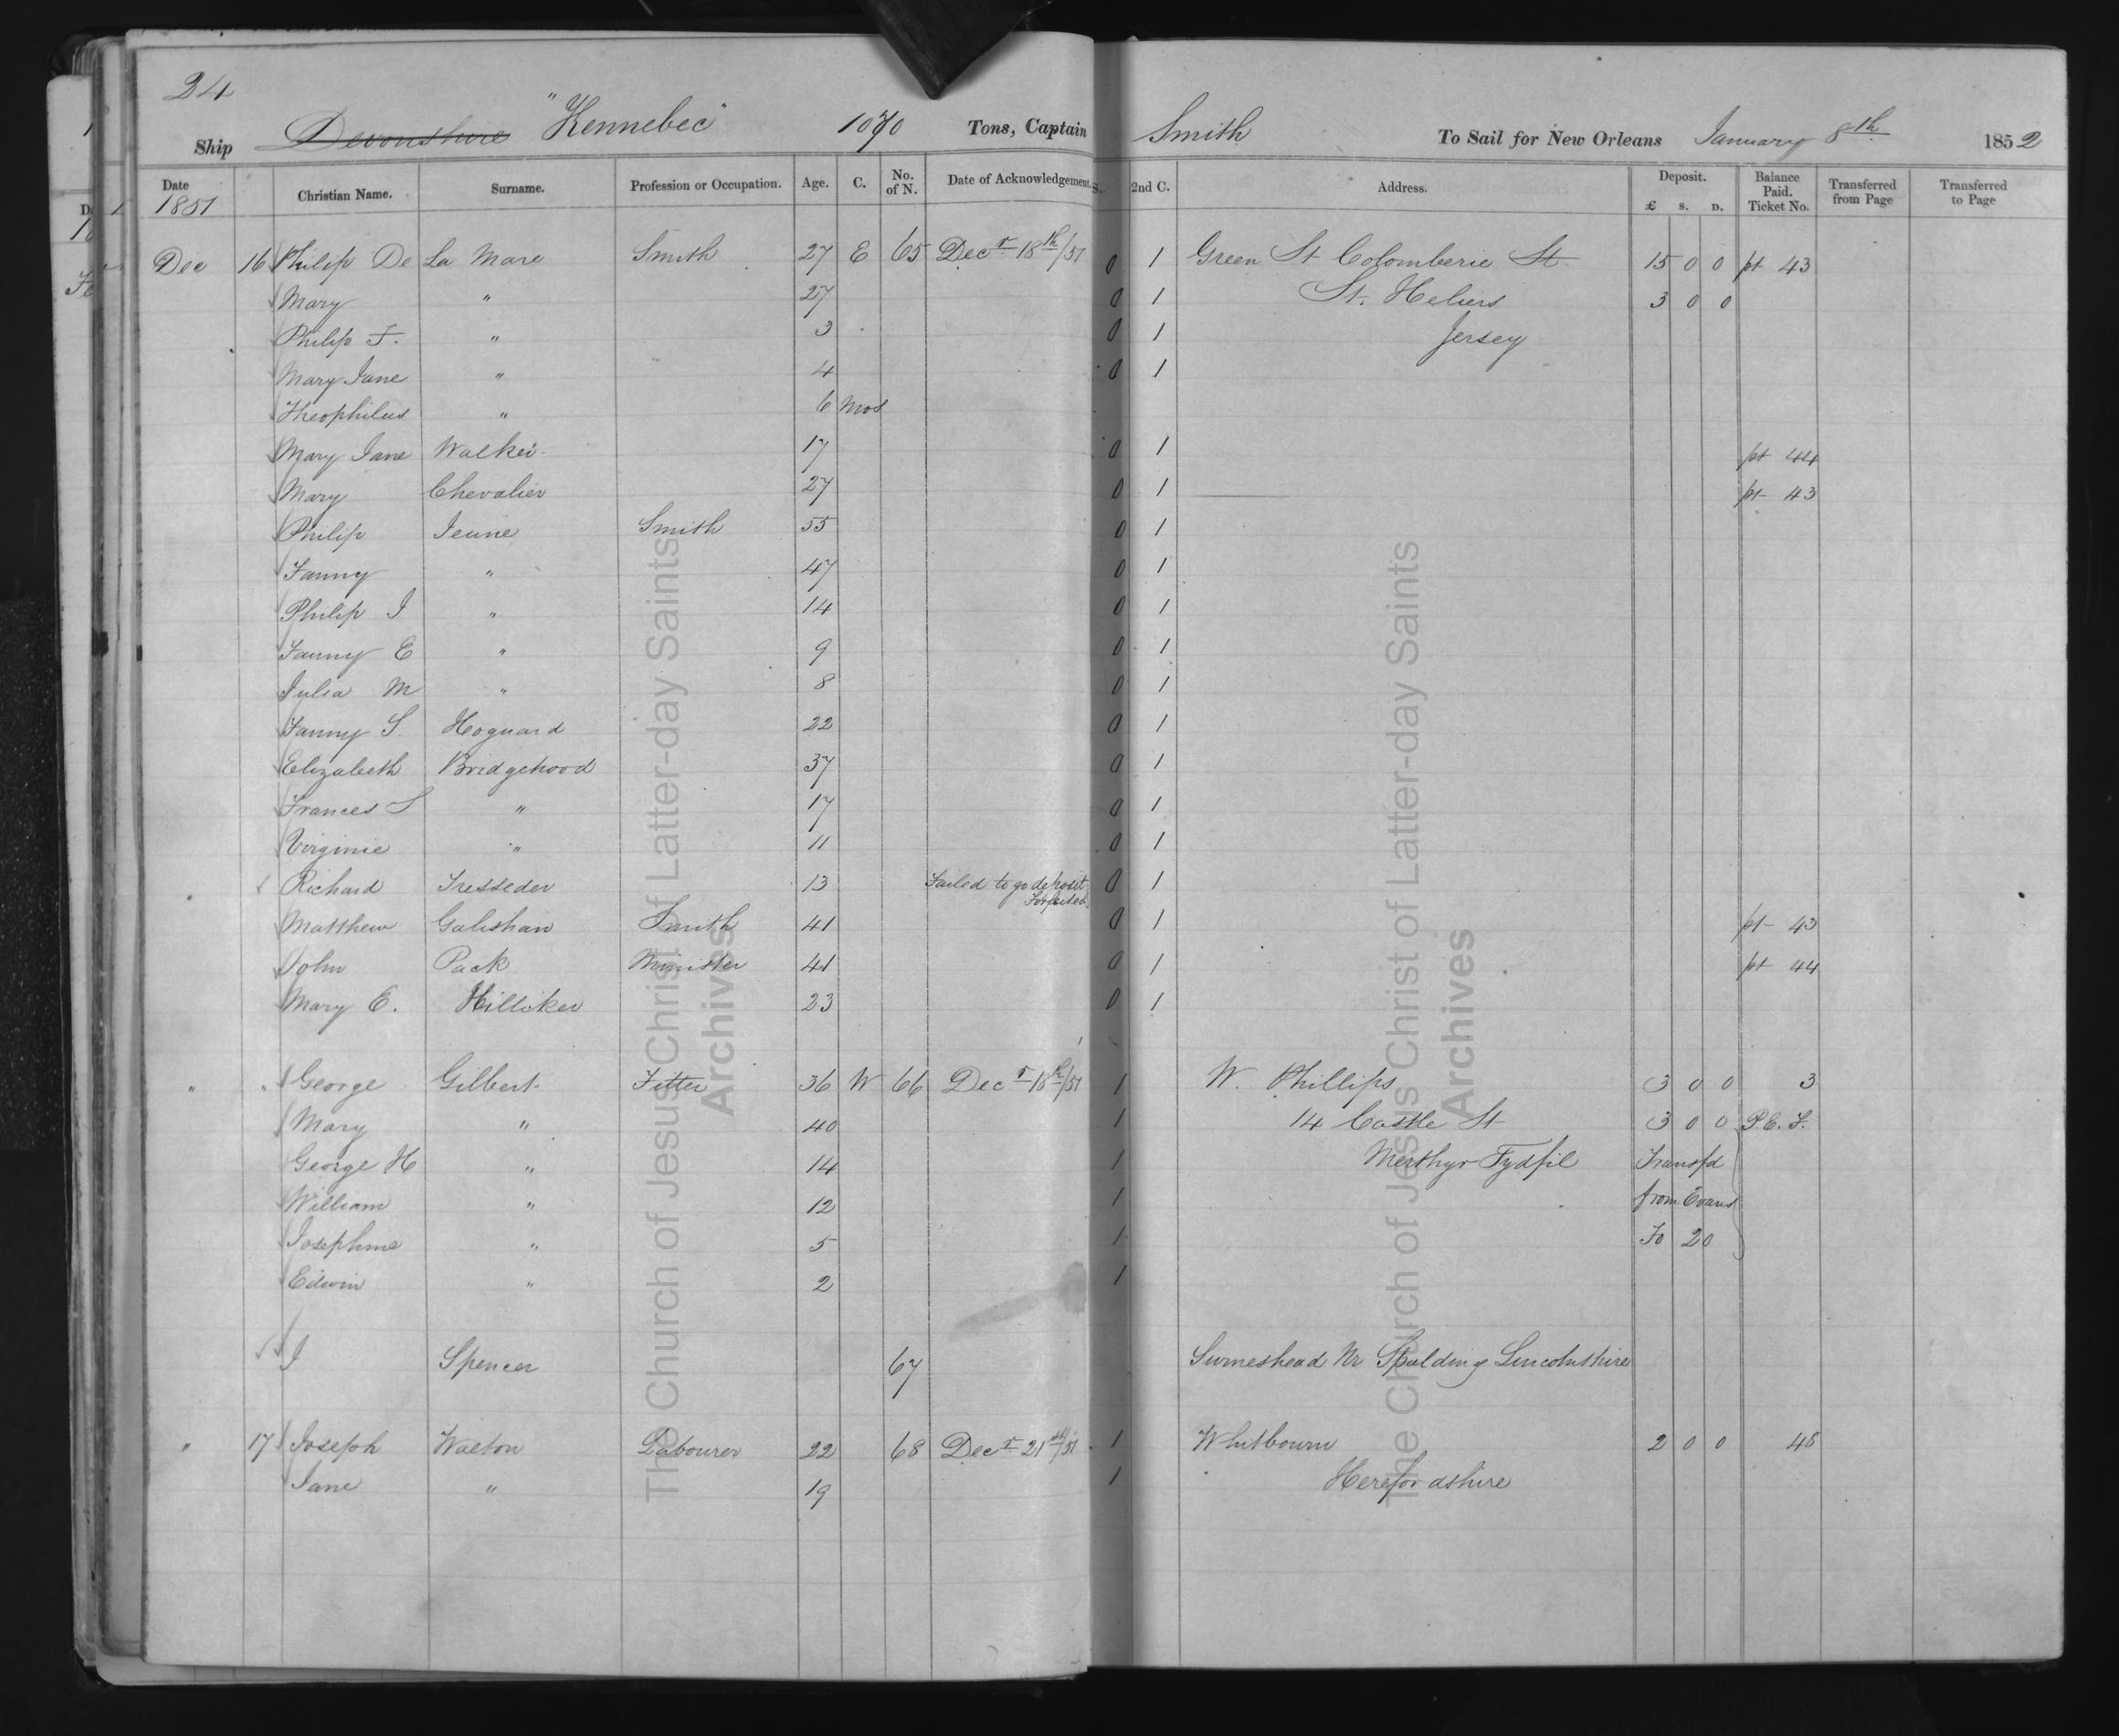 24
Ship Devonshire "Kennebec" 1070 Tons, Captain Smith To Sail for New Orleans January 8th 1852
Date 1851 Christian Name. Surname. Profession or Occupation. Age. C. No. of N. Date of Acknowledgement. S. 2nd C. Address. Deposit. £ S. D. Balance Paid. Ticket No. Transferred from Page Transferred to Page
Dec 16 Philip De La Mare Smith 27 E 65 Decr 18th/51 0 1 Green St Colomberie St 15 0 0 pt 43
Mary " 27 0 1 St. Heliers 3 0 0
Philip F. " 3 0 1 Jersey
Mary Jane " 4 0 1
Theophilus " 6 mos
Mary Jane Walker 17 0 1 pt 44
Mary Chevalier 27 0 1 pt 43
Philip Jeune Smith 55 0 1
Fanny " 47 0 1
Philip J " 14 0 1
Fanny E " 9 0 1
Julia M " 8 0 1
Fanny S. Hoguard 22 0 1
Elizabeth Bridgehood 37 0 1
Frances S " 17 0 1
Virginie " 11 0 1
Richard Tresseder 13 Failed to go deposit Forfeited 0 1
Matthew Galishan Smith 41 0 1 pt 43
John Pack Minister 41 0 1 pt 44
Mary E. Hilliker 23 0 1
" " George Gilbert Fitter 36 W 66 Decr 18th/51 1 W. Phillips 3 0 0 3
Mary " 40 1 14 Castle St 3 0 0 P.E.F.
George H " 14 1 Merthyr Tydfil Transfd
William " 12 1 from Evans
Josephine " 5 1 Fo 20
Edwin " 2 1
J Spencer 67 Surneshead Nr Spalding Lincolnshire
" 17 Joseph Walton Labourer 22 68 Decr 21st/51 1 Whitbourn 2 0 0 48
Jane " 19 1 Herefordshire
The Church of Jesus Christ of Latter-day Saints
Archives
The Church of Jesus Christ of Latter-day Saints
Archives